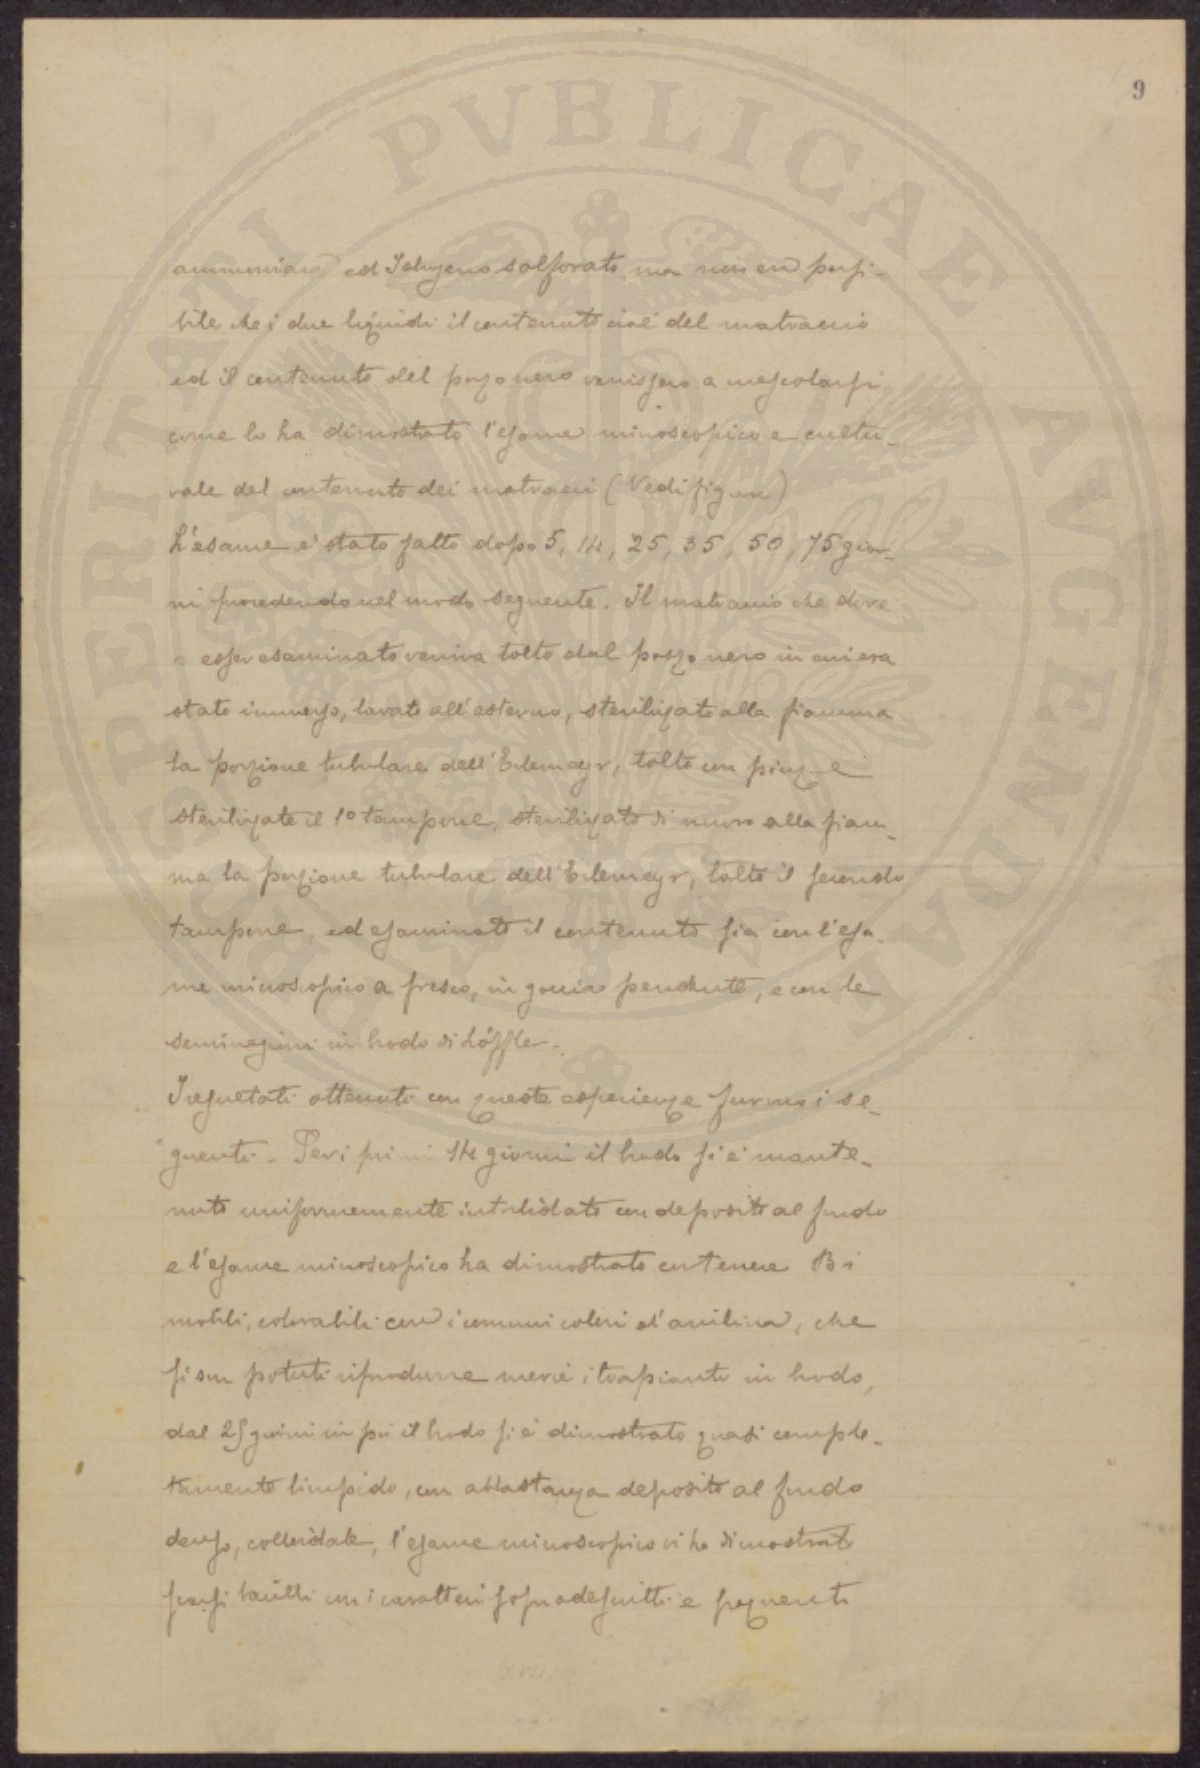 9
PROSPERITATI PVBLICAE AVGENDAE
ammoniaca ed Idrogeno solforato ma non era possi-
bile che i due liquidi il contenuto cioè del matraccio
ed il contenuto del pozzo nero venissero a mescolarsi
come lo ha dimostrato l'esame microscopico e cultu-
rale del contenuto dei matracci (Vedi figura)
L'esame è stato fatto dopo 5, 14, 25, 35, 50, 75 gior-
ni procedendo nel modo seguente. Il matraccio che dove
a esser esaminato veniva tolto dal pozzo nero in cui era
stato immerso, lavato all'esterno, sterilizzato alla fiamma
la porzione tubulare dell'Erlemeyr, tolto con pinze
sterilizzate il 1º tampone, sterilizzato di nuovo alla fiam-
ma la porzione tubulare dell'Erlemeyr, tolto il secondo
tampone, ed esaminato il contenuto sia con l'esa-
me microscopico a fresco, in goccia pendente, e con le
seminagioni in brodo di Löffler.
I resultati ottenuti con queste esperienze furono i se-
guenti. Per i primi 14 giorni il brodo si è mante-
nuto uniformemente intorbidato con deposito al fondo
e l'esame microscopico ha dimostrato contenere Bi
mobili, colorabili con i comuni colori d'anilina, che
si son potuti riprodurre mercè i trapianti in brodo,
dal 25 giorni in poi il brodo si è dimostrato quasi comple-
tamente limpido, con abbastanza deposito al fondo
denso, colloidale, l'esame microscopico vi ha dimostrato
scarsi bacilli con i caratteri sopradescritti e frequenti